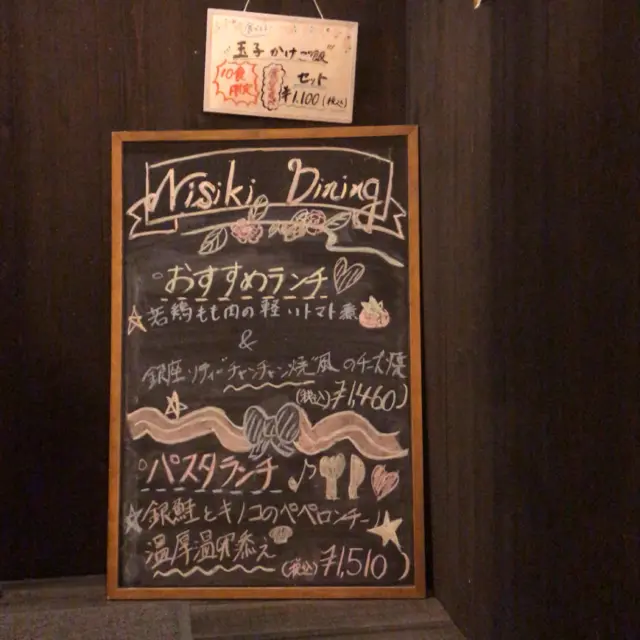 "玉子かけご飯"
10食
限定
セット
¥1,100(税込)
Nisiki Dining
おすすめランチ
若鶏もも肉の軽いトマト煮
&
銀座・リディ"チャンチャン焼"風のチーズ焼
(税込)¥1,460)
パスタランチ♪
銀鮭とキノコのペペロンチーノ
温厚温泉添え
(税込)¥1,510)